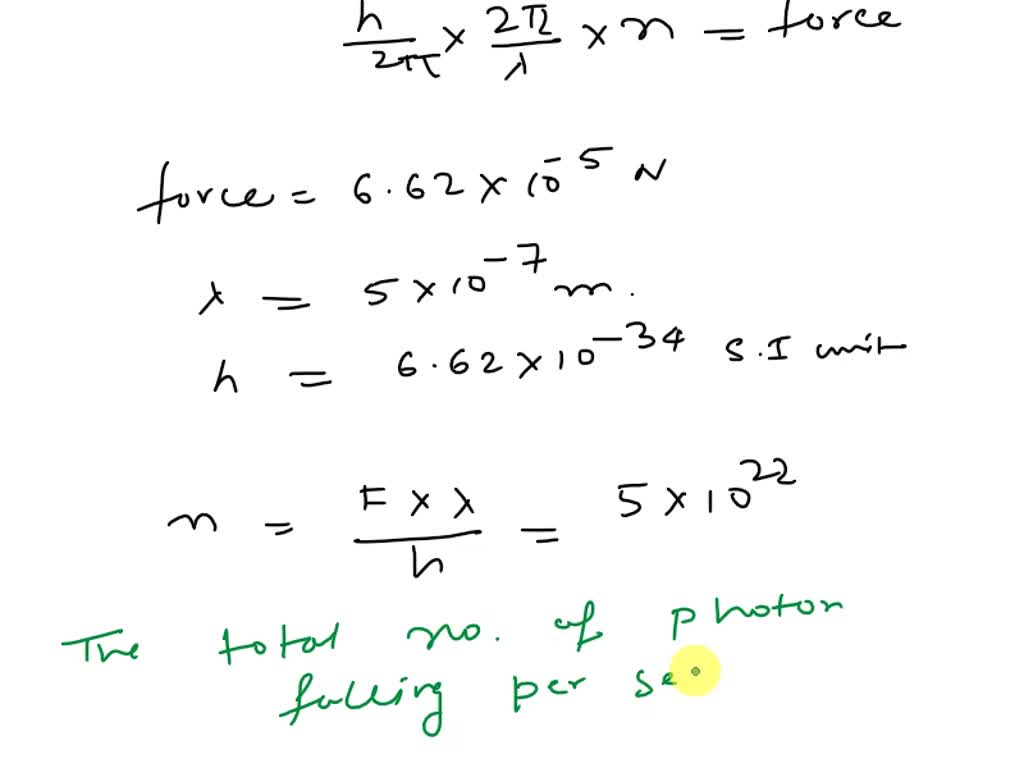 h/2π × 2π/λ × n = force
force = 6.62 × 10^-5 N
λ = 5 × 10^-7 m.
h = 6.62 × 10^-34 S.I unit
n = F × λ / h = 5 × 10^22
The total no. of photon
falling per se